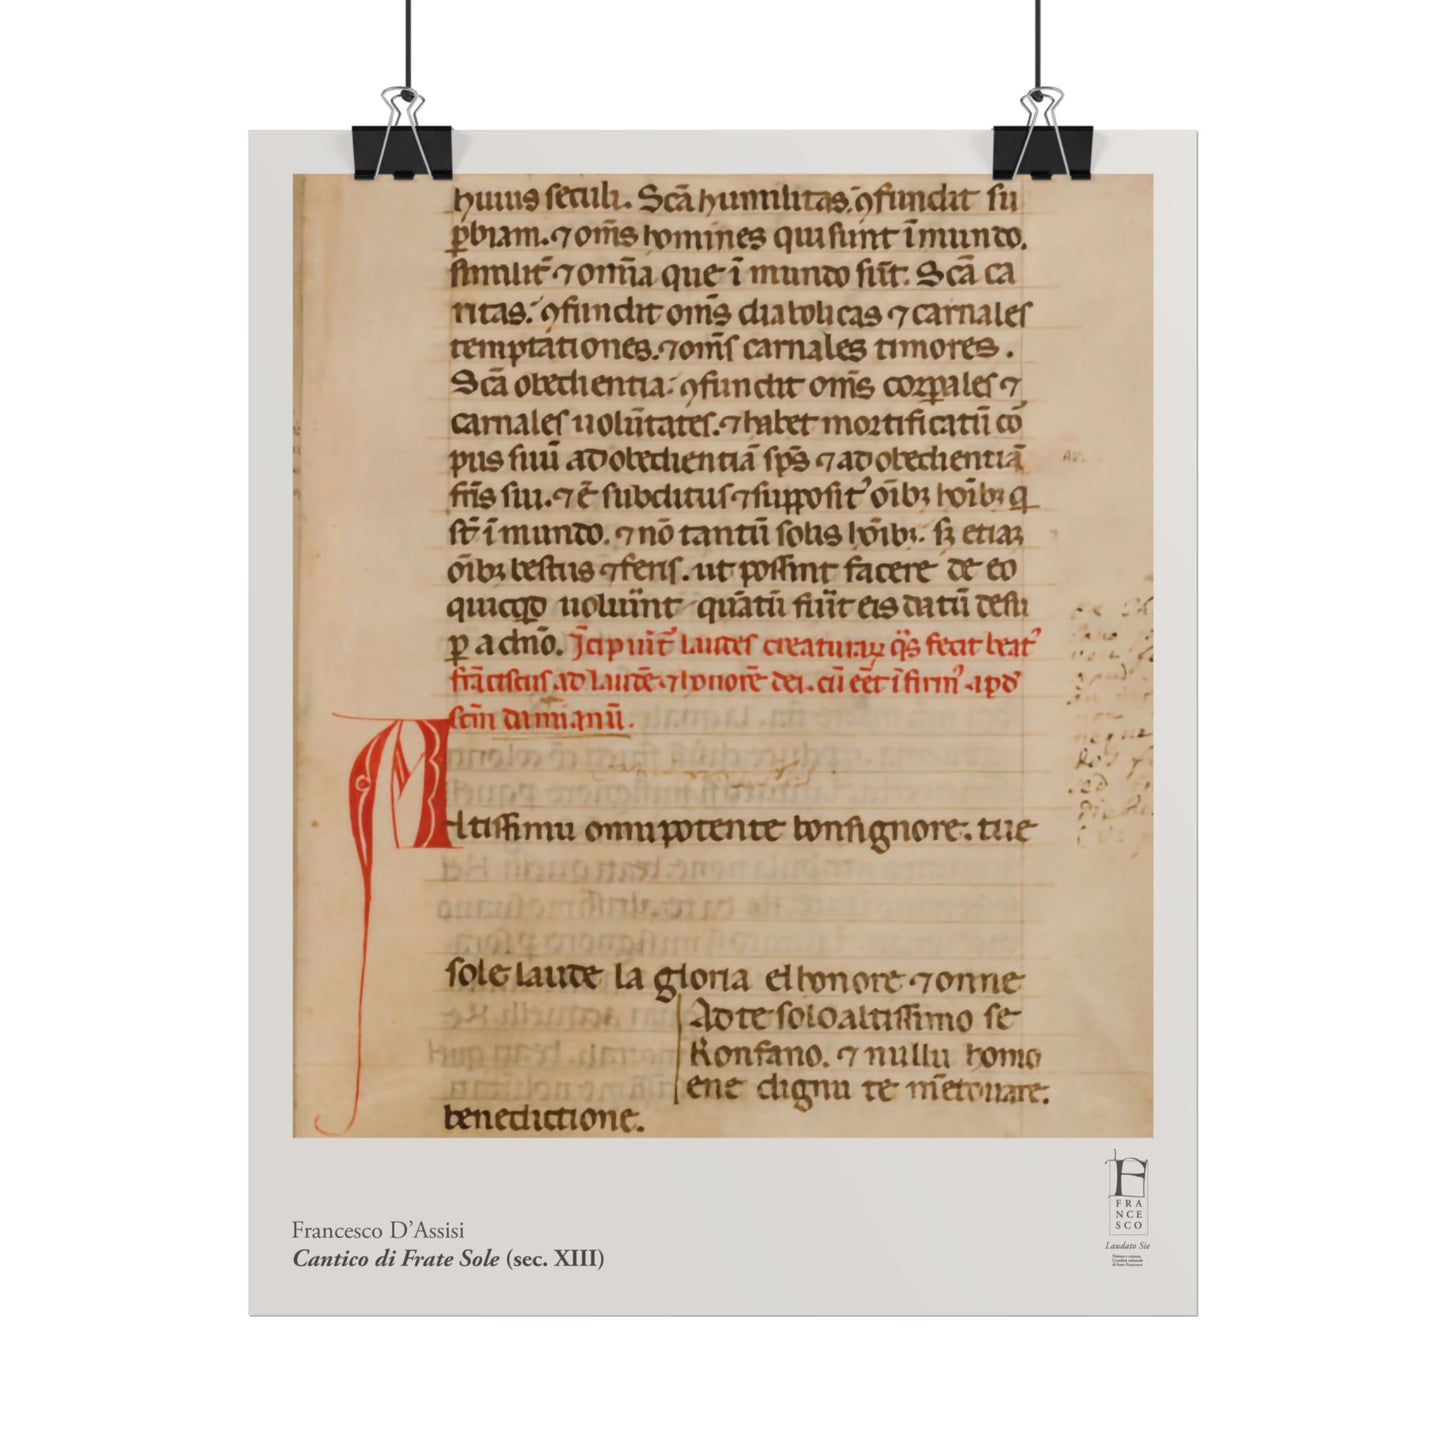 huius seculi. Scā humilitas. ꝯfundit su
ꝑbiam. ⁊ om̄s homines qui sunt ī mundo.
similit̄ ⁊ om̄ia que ī mundo sūt. Scā ca
ritas. ꝯfundit om̄s diabolicas ⁊ carnales
temptationes. ⁊ om̄s carnales timores.
Scā obedientia. ꝯfundit om̄s corꝑales ⁊
carnales uolūtates. ⁊ habet mortificatū cō
pus suū ad obedientiā sp̄s ⁊ ad obedientiā
fr̄is sui. ⁊ ē subditus ⁊ supposit᾽ oīb; hōib; q
st̄ ī mundo. ⁊ nō tantū solis hōib;. s; etiaꝫ
oīb; bestiis ⁊ feris. ut possint facere de eo
quicqd uoluīnt quātū fūit eis datū desu
ꝑ a dn̄o. Īcipiūt laudes creaturaꝝ q̄s fecit beat᾽
frāciscus ad laudē ⁊ honorē dei. cū eēt ī firm᾽ apd̄
scm̄ damianū.
Altissimu omnipotente bonsignore. tue
sole laude la gloria elhonore ⁊ onne
Ad te solo altissimo se
Konfano. ⁊ nullu homo
ene dignu te m̄etouare.
benedictione.
Francesco D’Assisi
Cantico di Frate Sole (sec. XIII)
F
FRA
NCE
SCO
Laudato Sie